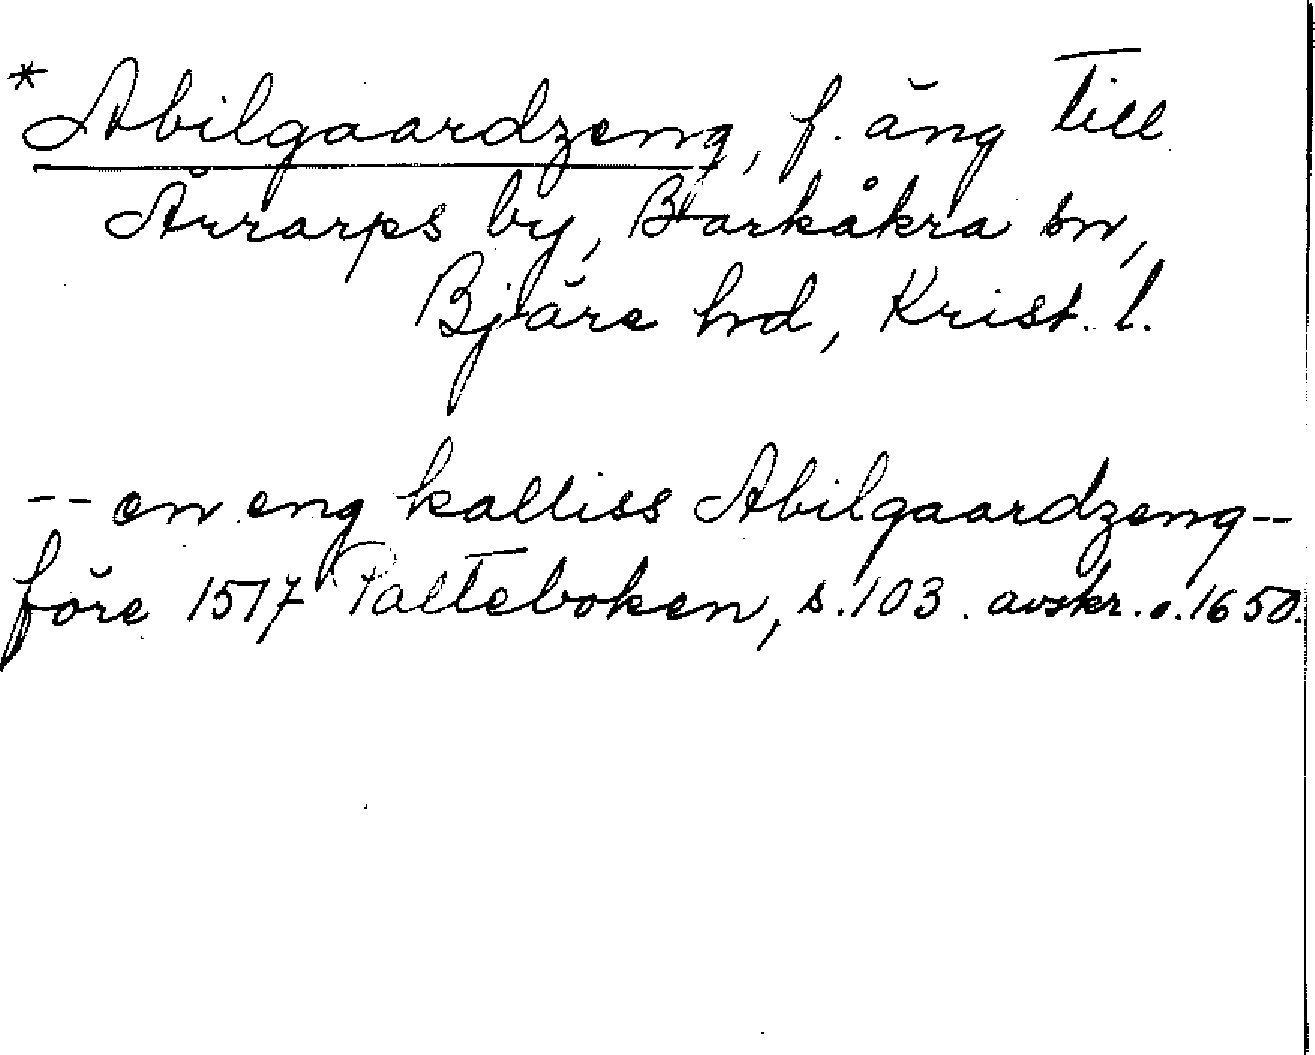 *Abilgaardzeng, f. äng till
Ärrarps by, Barkåkra sn,
Bjäre hrd, Krist. l.
-- en eng kalliss Abilgaardzeng --
före 1517 Palteboken, s. 103. avskr. o. 1650.